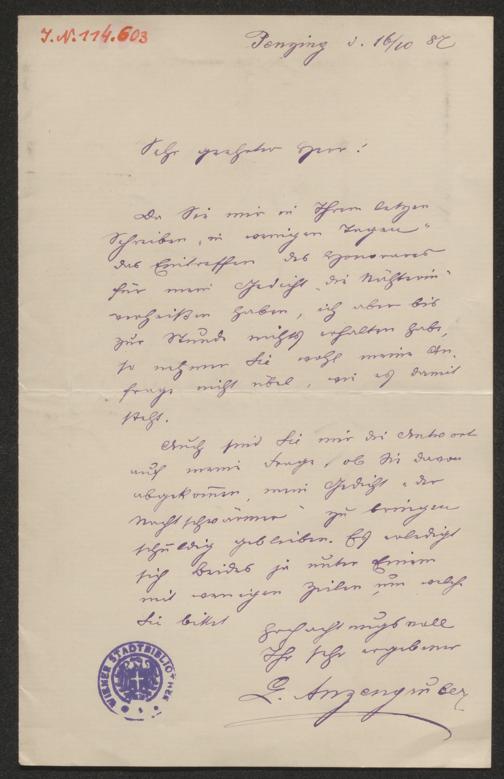 J.N. 114.603
Penzing d. 16/10 87
Sehr geehrter Herr!
Da Sie mir in Ihrem letzten
Schreiben „in wenigen Tagen“
das Eintreffen des Honorares
für mein Gedicht „die Näherin“
verheißen haben, ich aber bis
zur Stunde nichts erhalten habe,
so nehmen Sie wohl meine An-
frage nicht übel, wie es damit
steht.
Auch sind Sie mir die Antwort
auf meine Frage, ob Sie davon
abgekommen, mein Gedicht „der
Nachtschwärmer“ zu bringen
schuldig geblieben. Es erledigt
sich Beides ja unter Einem
mit wenigen Zeilen, um welche
Sie bittet
Hochachtungsvoll
Ihr sehr ergebener
L. Anzengruber
WIENER STADTBIBLIOTHEK